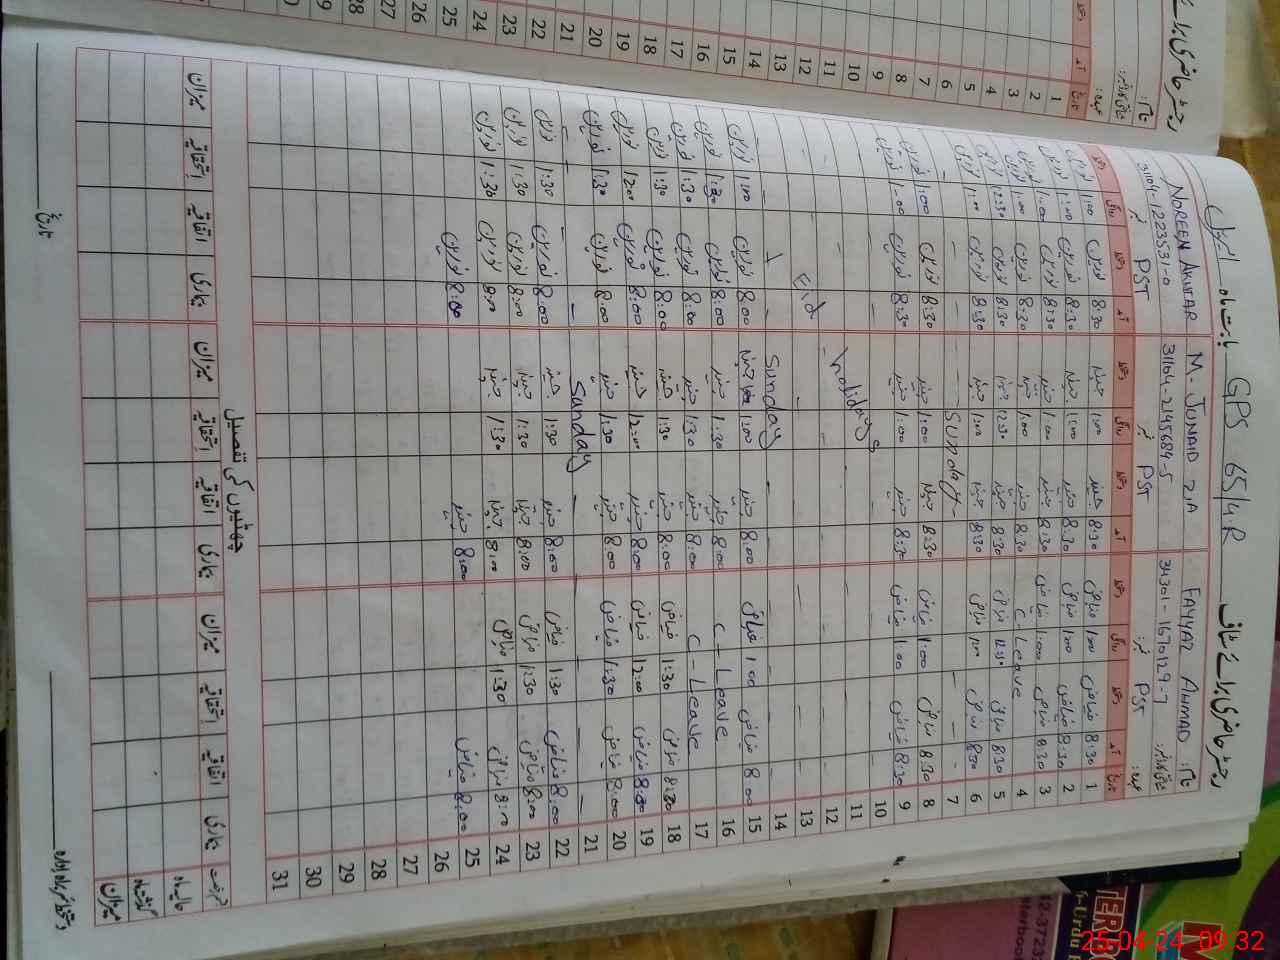 رجسٹر حاضری برائے سٹاف GPS 65/4R بابت ماہ اپریل
نام: FAYYAZ AHMAD M. JUNAID ZIA NOREEN AKHTAR
شناختی کارڈ نمبر: 34301-1670129-7 31104-2145684-5 31104-1223531-0
عہدہ: PST PST PST
تاریخ آمد دستخط روانگی دستخط آمد دستخط روانگی دستخط آمد دستخط روانگی دستخط
1 8:30 فیاض 1:00 فیاض 8:30 جنید 1:00 جنید 8:30 نورین 1:00 نورین
2 8:30 فیاض 1:00 فیاض 8:30 جنید 1:00 جنید 8:30 نورین 1:00 نورین
3 8:30 فیاض 1:00 فیاض 8:30 جنید 1:00 جنید 8:30 نورین 1:00 نورین
4 C Leave 8:30 جنید 1:00 جنید 8:30 نورین 1:00 نورین
5 8:30 فیاض 12:30 فیاض 8:30 جنید 12:30 جنید 8:30 نورین 12:30 نورین
6 8:30 فیاض 1:00 فیاض 8:30 جنید 1:00 جنید 8:30 نورین 1:00 نورین
7 - - - Sunday - - -
8 8:30 فیاض 1:00 فیاض 8:30 جنید 1:00 جنید 8:30 نورین 1:00 نورین
9 8:30 فیاض 1:00 فیاض 8:30 جنید 1:00 جنید 8:30 نورین 1:00 نورین
10
11 holidays
12
13 Eid
14 Sunday
15 8:00 فیاض 1:00 فیاض 8:00 جنید 1:00 جنید 8:00 نورین 1:00 نورین
16 C - Leave 8:00 جنید 1:30 جنید 8:00 نورین 1:30 نورین
17 C - Leave 8:00 جنید 1:30 جنید 8:00 نورین 1:30 نورین
18 8:30 فیاض 1:30 فیاض 8:00 جنید 1:30 جنید 8:00 نورین 1:30 نورین
19 8:00 فیاض 12:00 فیاض 8:00 جنید 12:00 جنید 8:00 نورین 12:00 نورین
20 8:00 فیاض 1:30 فیاض 8:00 جنید 1:30 جنید 8:00 نورین 1:30 نورین
21 - Sunday - - -
22 8:00 فیاض 1:30 فیاض 8:00 جنید 1:30 جنید 8:00 نورین 1:30 نورین
23 8:00 فیاض 1:30 فیاض 8:00 جنید 1:30 جنید 8:00 نورین 1:30 نورین
24 8:00 فیاض 1:30 فیاض 8:00 جنید 1:30 جنید 8:00 نورین 1:30 نورین
25 8:00 فیاض 8:00 جنید 8:00 نورین
26
27
28
29
30
31
چھٹیوں کی تفصیل
بیماری اتفاقیہ استحقاقیہ میزان بیماری اتفاقیہ استحقاقیہ میزان بیماری اتفاقیہ استحقاقیہ میزان
حالیہ ماہ
گزشتہ ماہ
میزان
دستخط سربراہ ادارہ تاریخ
رجسٹر حاضری برائے
نام:
شناختی کارڈ نمبر:
عہدہ:
تاریخ آمد
1
2
3
4
5
6
7
8
9
10
11
12
13
14
15
16
17
18
19
20
21
22
23
24
25
26
27
28
29
25-04-24 09:32